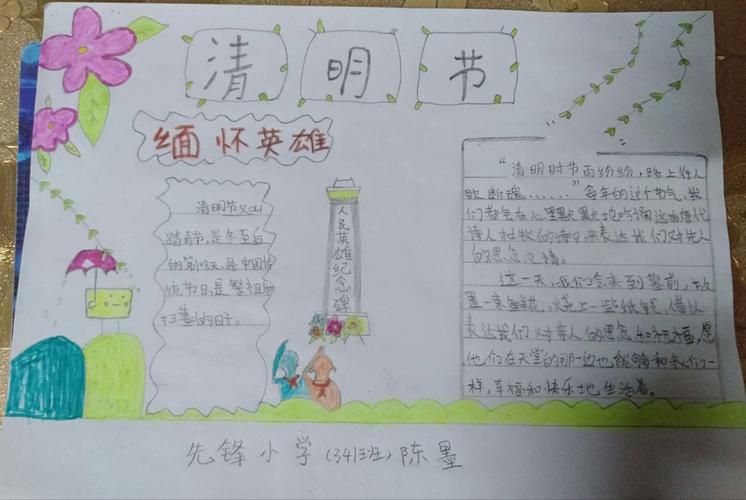 清明节
缅怀英雄
清明节又叫
踏青节,是冬至后
的第108天,是中国传
统节日,是祭祖和
扫墓的日子。
人民英雄纪念碑
“清明时节雨纷纷,路上行人
欲断魂……”每年的这个节气,我
们都会在心里默默地吟诵这首唐代
诗人杜牧的诗句来表达我们对先人
的思念之情。
这一天,我们会来到墓前,放
置一束鲜花,烧上一些纸钱,借以
表达我们对亲人的思念和祝福,愿
他们在天堂的那边也能够和我们一
样,幸福和快乐地生活着。
先锋小学(341班)陈墨